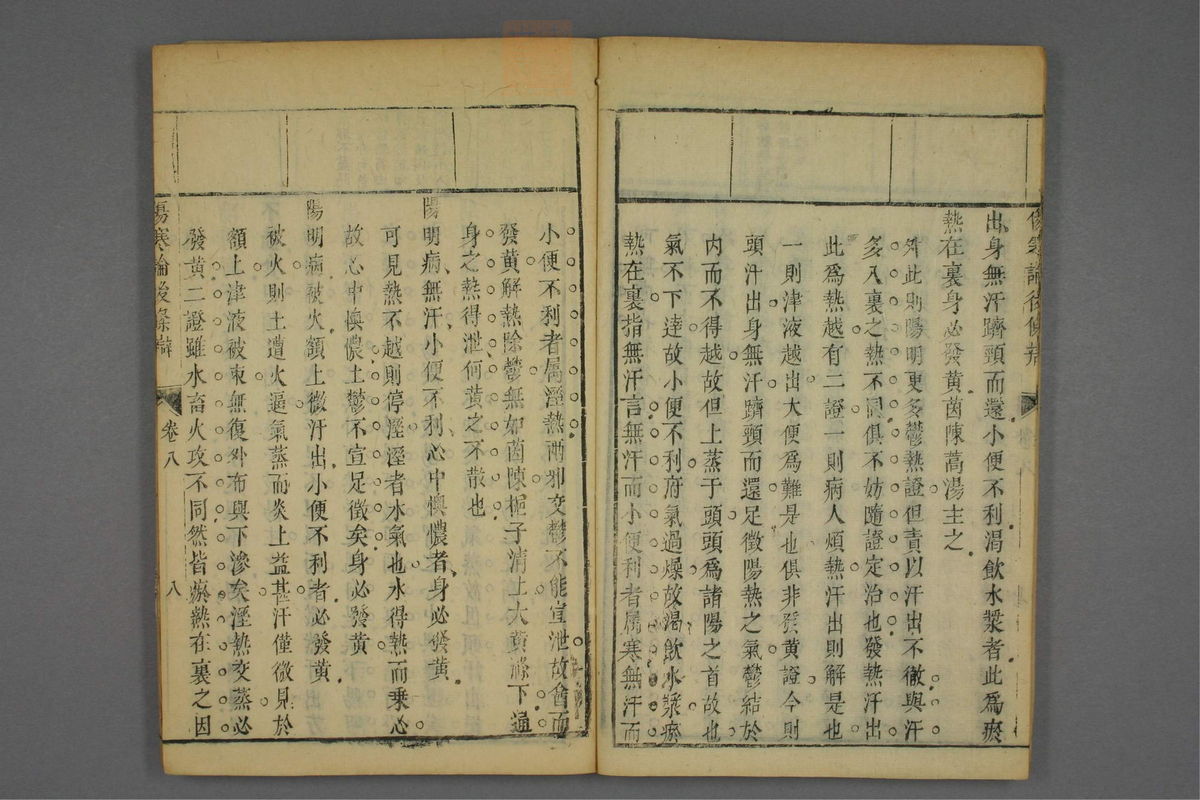 傷寒論後條辨
出身無汗躋頸而還小便不利渴飲水漿者此爲瘀
熱在裏身必發黃茵陳蒿湯主之
舛此則陽明更多鬱熱證但責以汗出不徹與汗
多入裏之熱不同俱不妨隨證定治也發熱汗出
此爲熱越有二證一則病人煩熱汗出則解是也
一則津液越出大便爲難是也俱非發黃證今則
頭汗出身無汗躋頸而還足徵陽熱之氣鬱結於
内而不得越故但上蒸于頭頭爲諸陽之首故也
氣不下達故小便不利府氣過燥故渴飲水漿瘀
熱在裏指無汗言無汗而小便利者屬寒無汗而
小便不利者屬溼熱兩邪交鬱不能宣泄故會而
發黃解熱除鬱無如茵陳梔子清上大黃滌下通
身之熱得泄何黃之不散也
陽明病無汗小便不利心中懊憹者身必發黃
可見熱不越則停溼溼者水氣也水得熱而乗心
故心中懊憹土鬱不宣足徵矣身必發黃
陽明病被火額上微汗出小便不利者必發黃
被火則土遭火逼氣蒸而炎上益甚汗僅微見於
額上津液被束無復外布與下滲矣溼熱交蒸必
發黃二證雖水畜火攻不同然皆瘀熱在裏之因
傷寒論後條辨 卷八 八